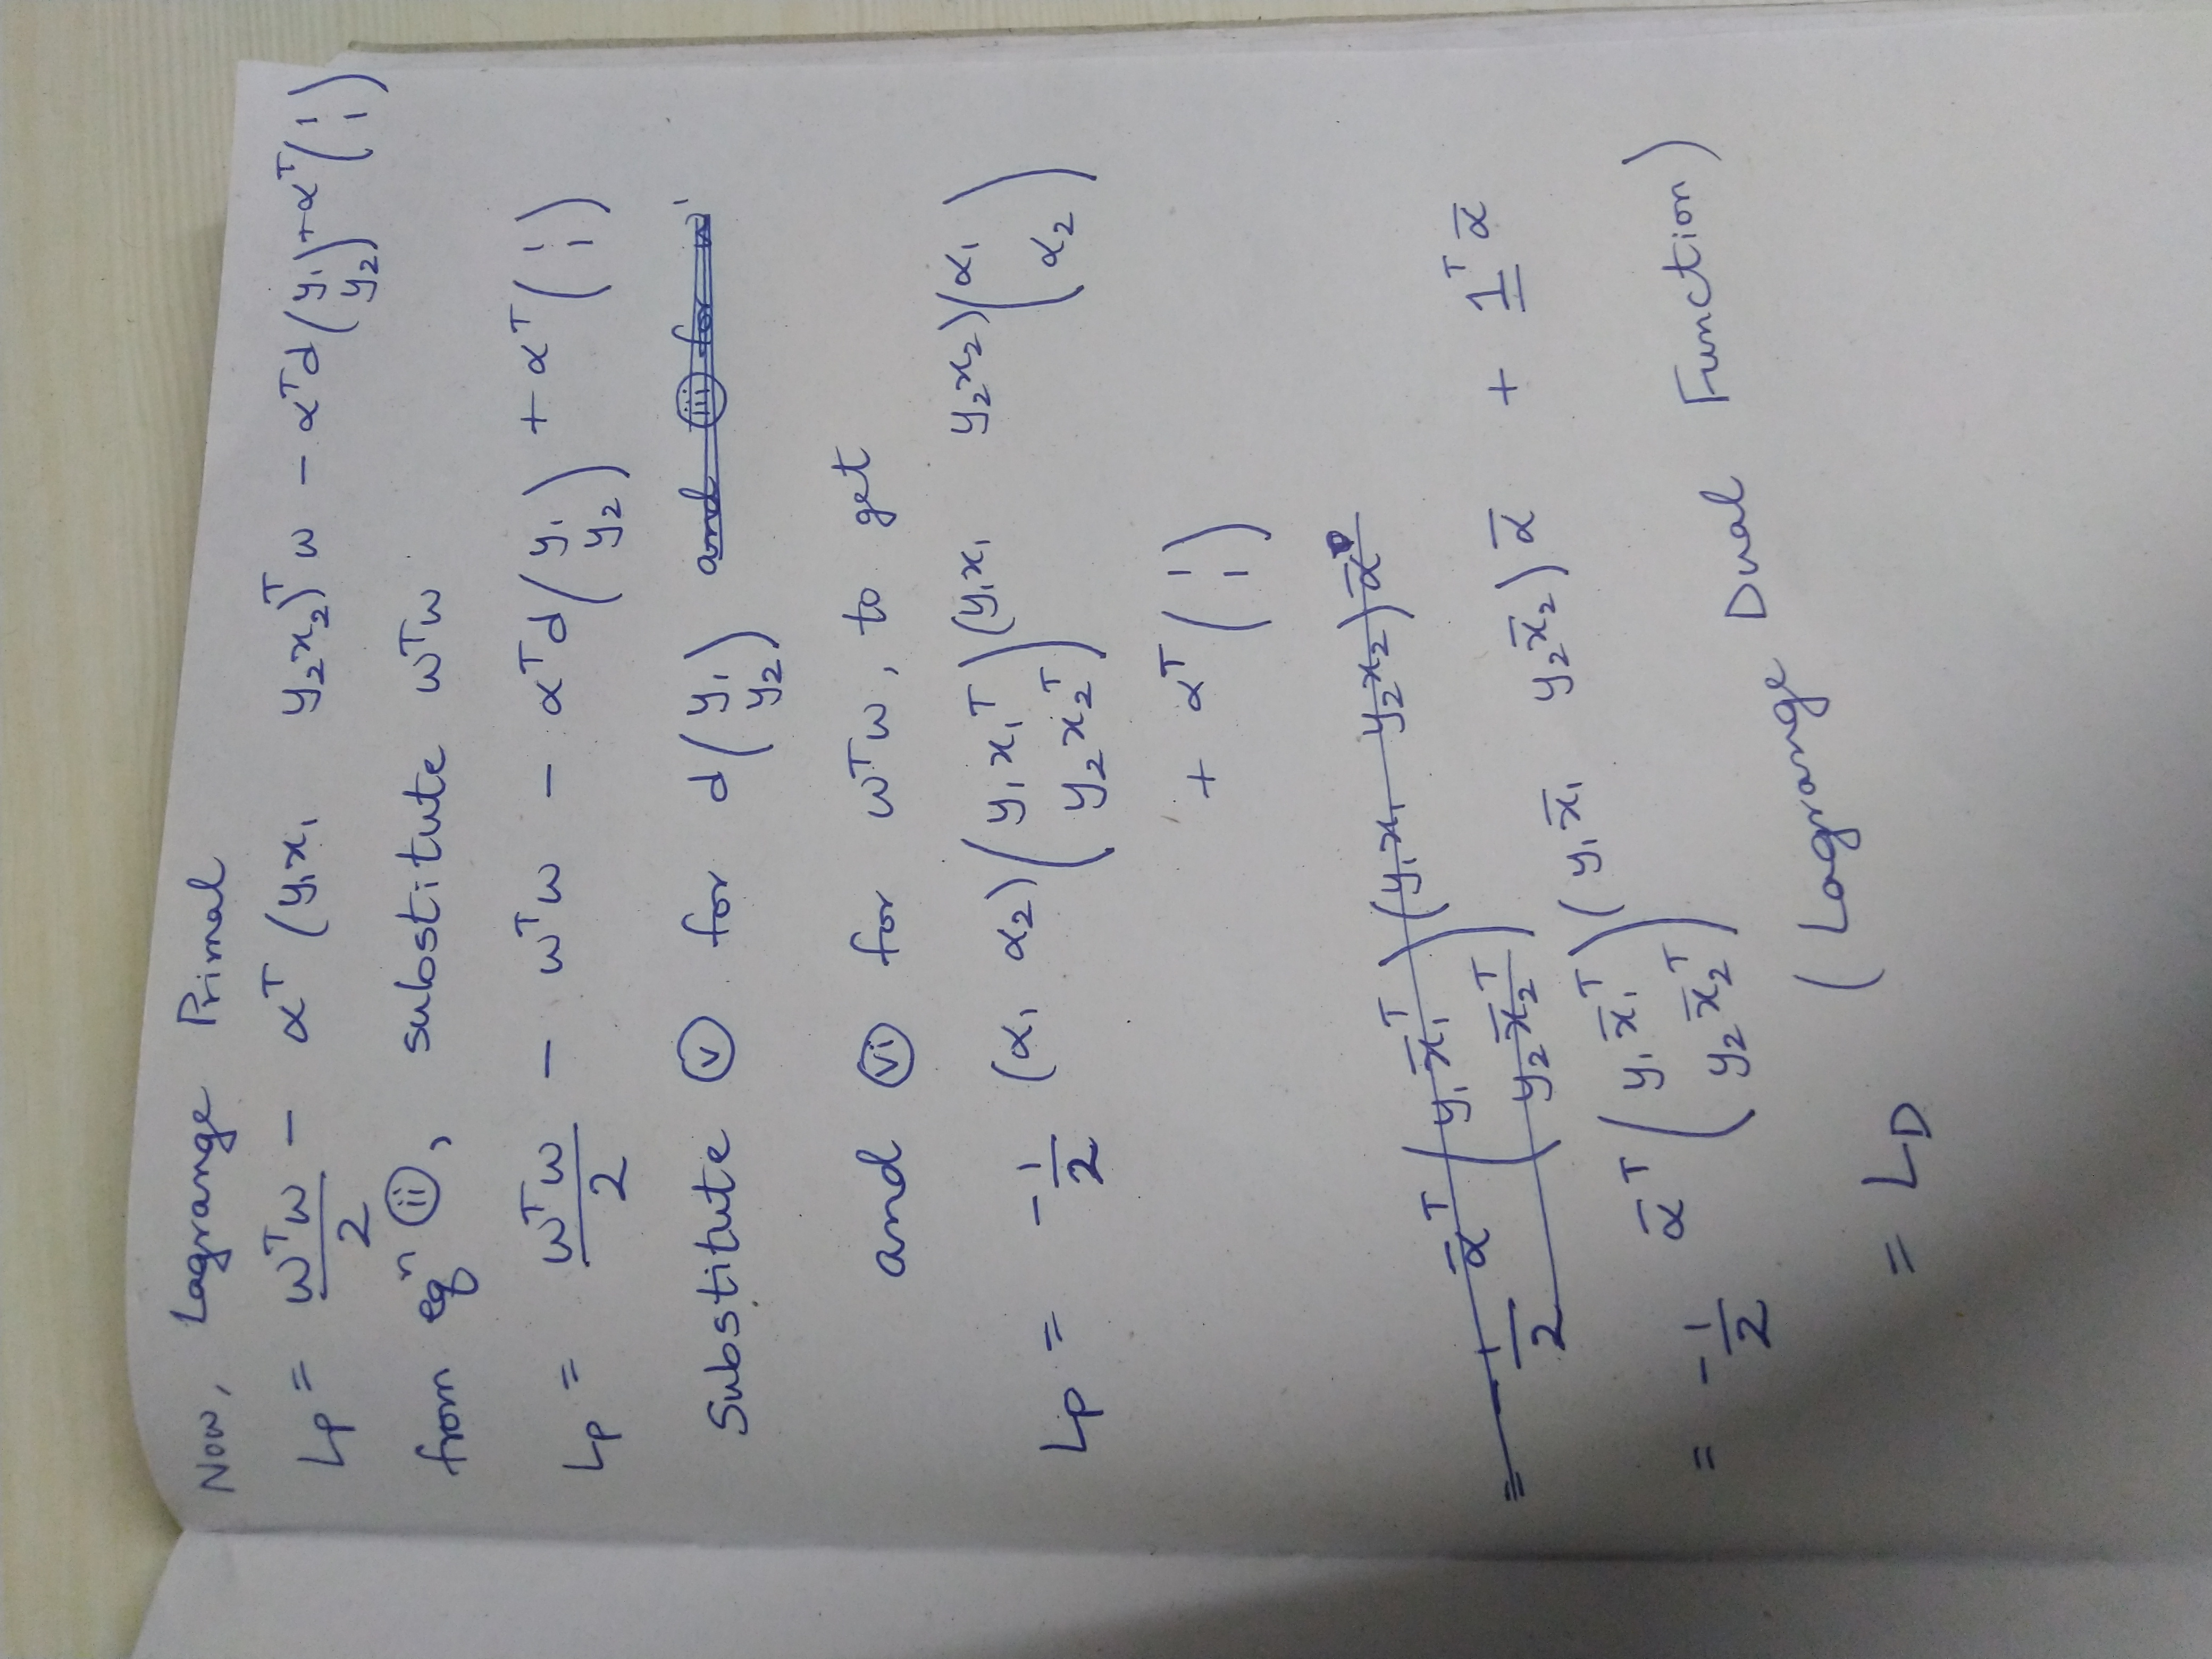 Now, Lagrange Primal
L_P = \frac{w^T w}{2} - α^T (y_1x_1 y_2x_2)^T w - α^T d \begin{pmatrix} y_1 \\ y_2 \end{pmatrix} + α^T \begin{pmatrix} 1 \\ 1 \end{pmatrix}
from eq^n (ii), substitute w^T w
L_P = \frac{w^T w}{2} - w^T w - α^T d \begin{pmatrix} y_1 \\ y_2 \end{pmatrix} + α^T \begin{pmatrix} 1 \\ 1 \end{pmatrix}
Substitute (v) for d \begin{pmatrix} y_1 \\ y_2 \end{pmatrix} ~~and (iii) for w~~
and (vi) for w^T w, to get
L_P = -\frac{1}{2} (α_1 α_2) \begin{pmatrix} y_1 x_1^T \\ y_2 x_2^T \end{pmatrix} (y_1x_1 y_2x_2) \begin{pmatrix} α_1 \\ α_2 \end{pmatrix}
+ α^T \begin{pmatrix} 1 \\ 1 \end{pmatrix}
~~= -\frac{1}{2} \bar{α}^T \begin{pmatrix} y_1 \bar{x}_1^T \\ y_2 \bar{x}_2^T \end{pmatrix} (y_1x_1 y_2x_2) \bar{α}~~
= -\frac{1}{2} \bar{α}^T \begin{pmatrix} y_1 \bar{x}_1^T \\ y_2 \bar{x}_2^T \end{pmatrix} (y_1\bar{x}_1 y_2\bar{x}_2) \bar{α} + \underline{1}^T \bar{α}
= L_D (Lagrange Dual Function)